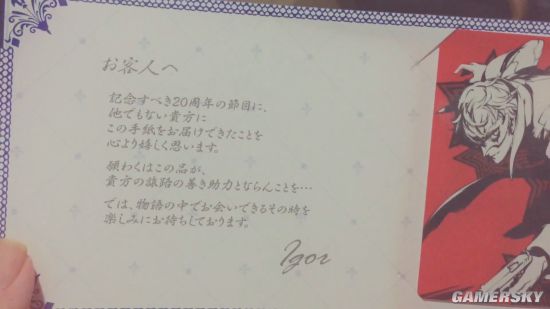 お客人へ
記念すべき20周年の節目に、
他でもない貴方に
この手紙をお届けできたことを
心より嬉しく思います。
願わくはこの品が、
貴方の旅路の善き助力とならんことを…
では、物語の中でお会いできるその時を
楽しみにお待ちしております。
Igor
GAMERSKY